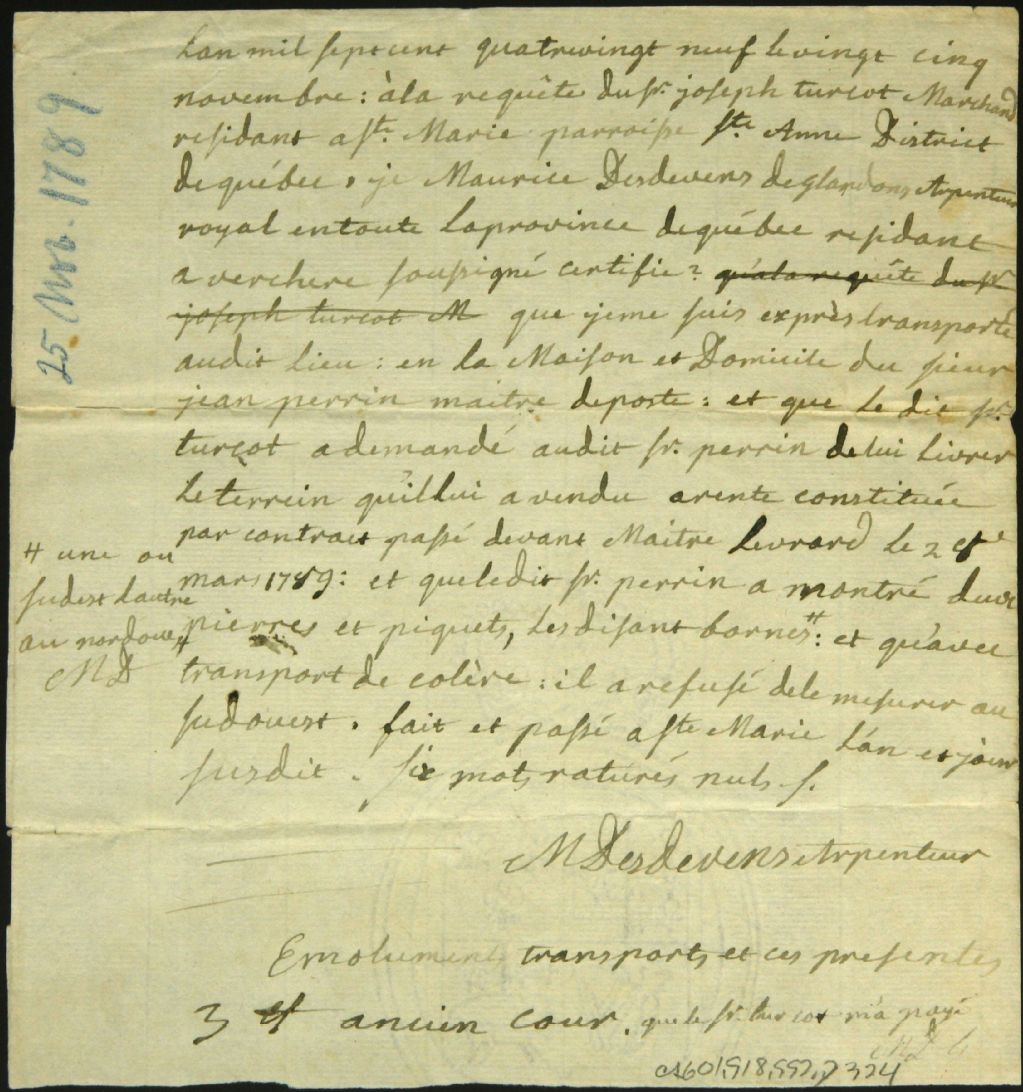 25 Nov. 1789
Lan mil sept cent quatrevingt neuf levingt cinq
novembre : àla requête du sr. joseph turcot Marchand
residant a ste. Marie parroisse ste. Anne District
dequébec, je Maurice Desdevens deglandons Arpenteur
royal entoute Laprovince dequébec residant
a verchere soussigné certifie? qu'ala requête du sr
joseph turcot M que jeme suis exprès transporté
audit lieu : en la Maison et Domicile du sieur
jean perrin maitre deposte : et que Le dit sr.
turcot ademandé audit sr. perrin delui Livrer
Leterrein qu'illui avendu arente constituée
par contract passé devant Maitre Levrard Le 2
mars 1789 : et queledit sr. perrin a montré deux
pierres et piquets, Lesdisant bornes # : et qu'avec
# une au
sudest Lautre
au nordouest
MD
transport de colère : il arefusé dele mesurer au
sudouest. fait et passé a ste Marie L'án et jour
susdit. six mots raturés nuls
MDesdevens Arpenteur
Emolument transports et ces presentes
3 ancien cour. que le sr. turcot m'a payé
MD